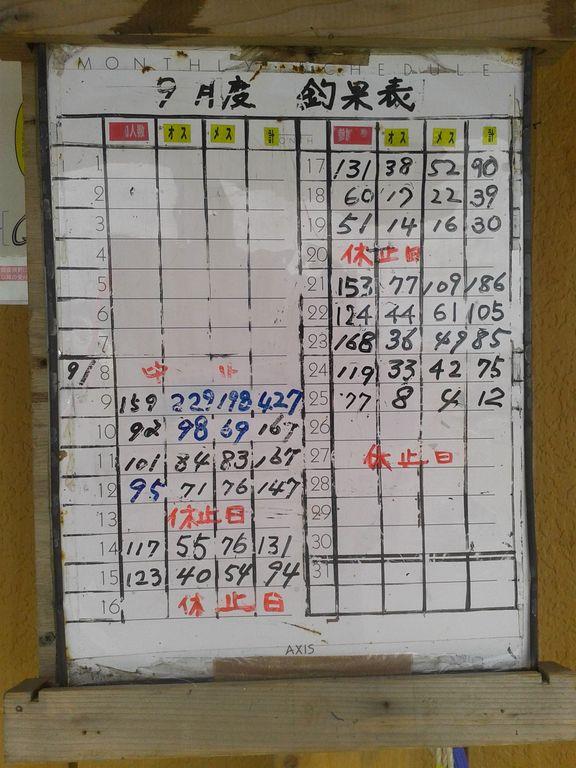 MONTHLY SCHEDULE
9月度 釣果表
オス メス 計
オス メス 計
1
2
3
4
5
6
7
9/ 8 中 止
9 159 229 198 427
10 92 98 69 167
11 101 84 83 167
12 95 71 76 147
13 休止日
14 117 55 76 131
15 123 40 54 94
16 休止日
17 131 38 52 90
18 60 17 22 39
19 51 14 16 30
20 休止日
21 153 77 109 186
22 124 44 61 105
23 168 36 49 85
24 119 33 42 75
25 77 8 4 12
26
27 休止日
28
29
30
31
AXIS